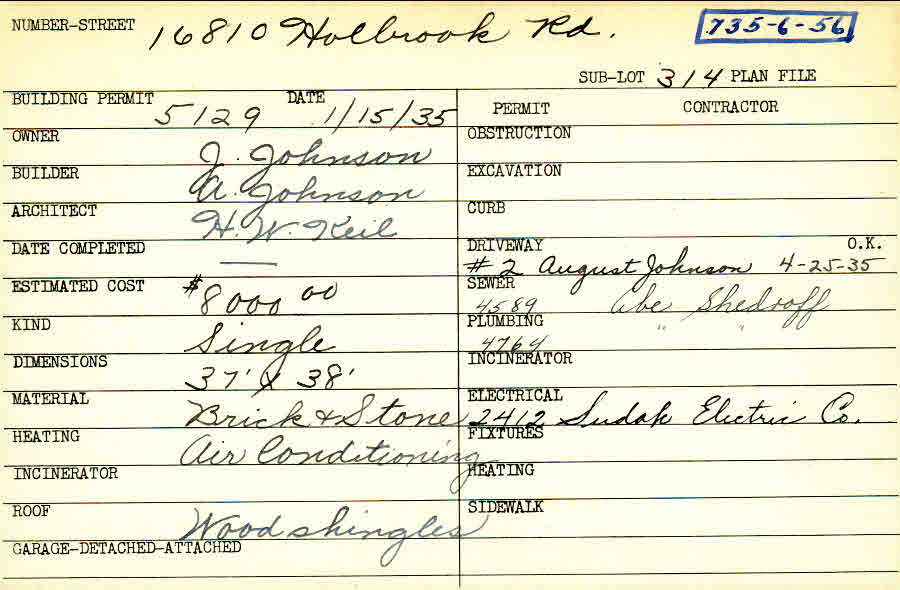 NUMBER-STREET 16810 Holbrook Rd. 735-6-56
SUB-LOT 314 PLAN FILE
BUILDING PERMIT 5129 DATE 1/15/35
OWNER J. Johnson
BUILDER A. Johnson
ARCHITECT H. W. Keil
DATE COMPLETED —
ESTIMATED COST $8000 00
KIND Single
DIMENSIONS 37' X 38'
MATERIAL Brick & Stone
HEATING Air Conditioning
INCINERATOR
ROOF Wood shingles
GARAGE-DETACHED-ATTACHED
PERMIT CONTRACTOR
OBSTRUCTION
EXCAVATION
CURB
DRIVEWAY O.K.
# 2 August Johnson 4-25-35
SEWER
4589 Abe Shedroff
PLUMBING " "
4764
INCINERATOR
ELECTRICAL
2412 Sudak Electric Co.
FIXTURES
HEATING
SIDEWALK